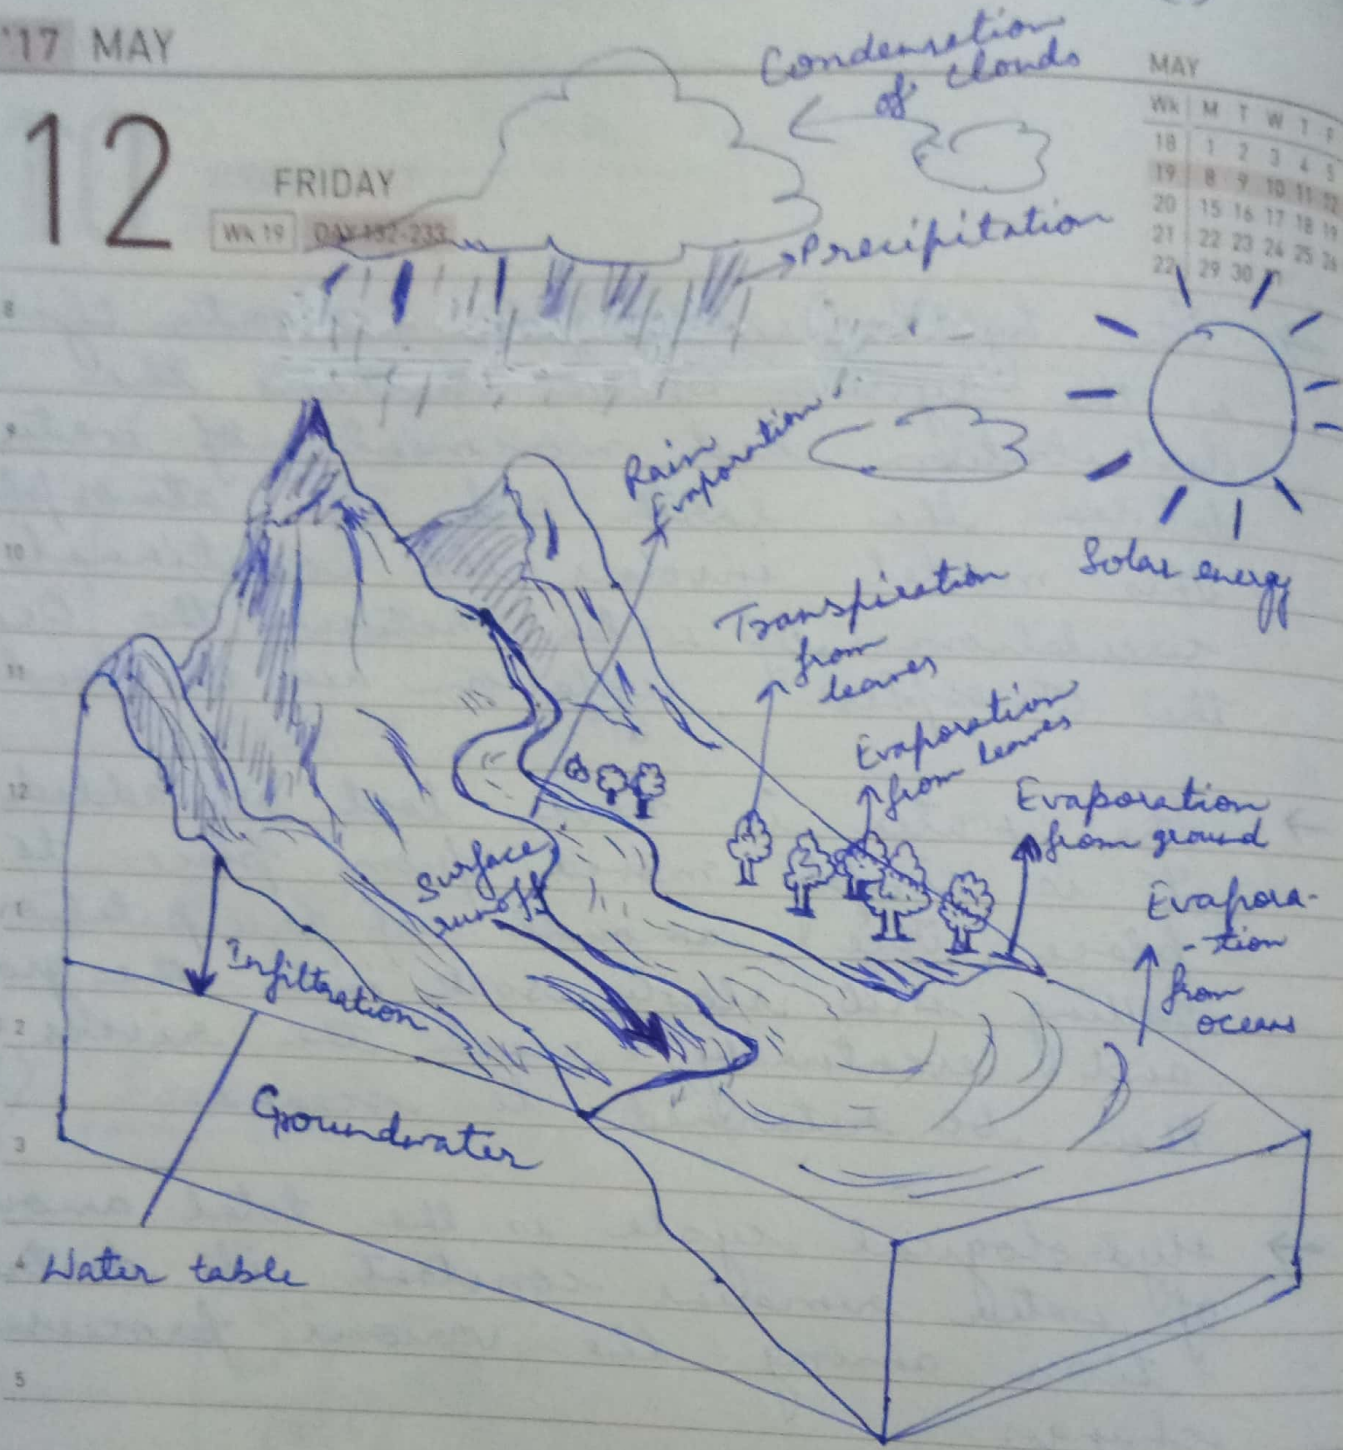 '17 MAY
12
FRIDAY
Wk 19 DAY 132-233
Condensation
of clouds
MAY
Wk M T W T F
18 1 2 3 4 5
19 8 9 10 11 12
20 15 16 17 18 19
21 22 23 24 25 26
22 29 30
Precipitation
8
9
10
11
12
1
2
3
4
5
Rain
Evaporation
Solar energy
Transpiration
from
leaves
Evaporation
from leaves
Evaporation
from ground
Evapora-
-tion
from
oceans
Surface
runoff
Infiltration
Groundwater
Water table